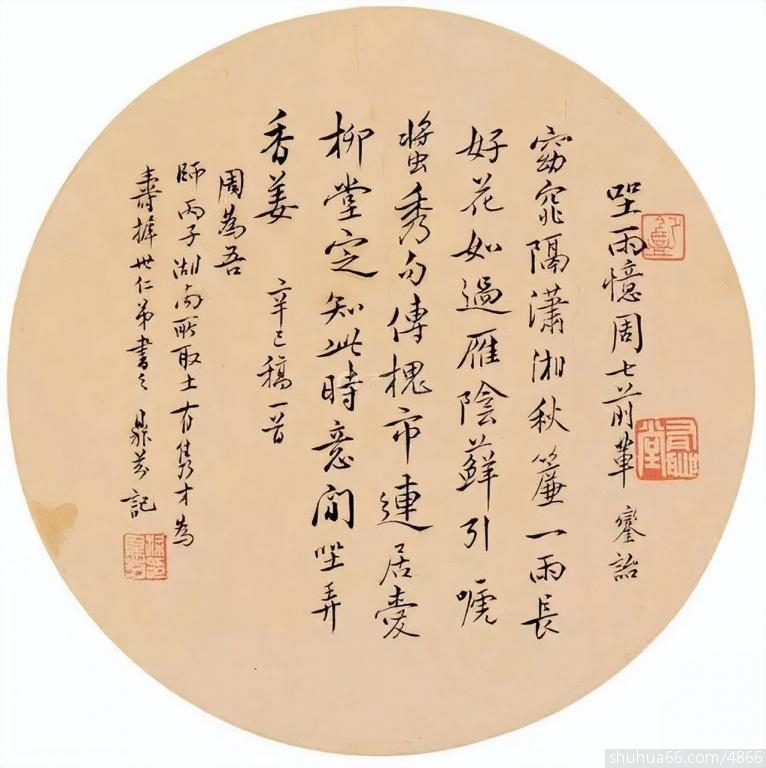 坐雨憶周七前輩 鑾詒
窈窕隔瀟湘秋簾一雨長
好花如過雁陰蘚引啼
螀秀句傳槐市連居愛
柳堂定知此時意閒坐弄
香姜 辛巳稿一首
周為吾
師丙子湖南所取士有雋才為
壽 世仁弟書之 鼎芬記
shuhua66.com/4866